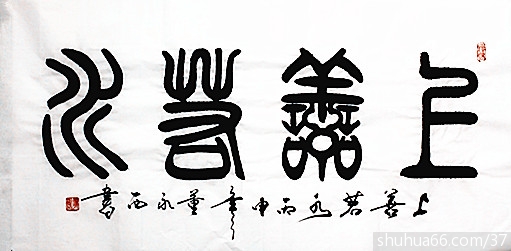 上善若水
上善若水丙申年董永西書
shuhua66.com/37